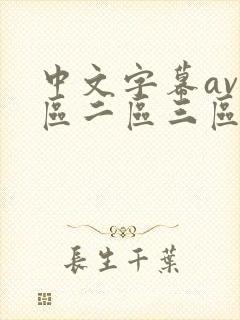 中文字幕av
區二區三區
長生千葉